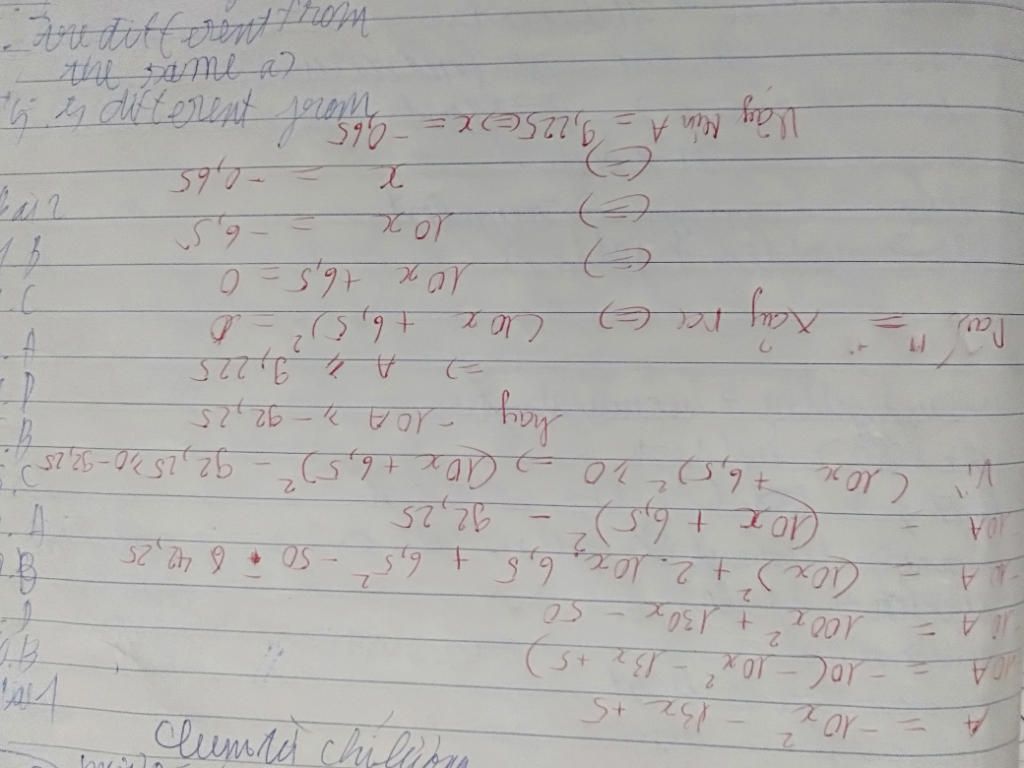 A = -10x² - 13x + 5
-10A = -10(-10x² - 13x + 5)
-10A = 100x² + 130x - 50
-10A = (10x)² + 2.10x.6,5 + 6,5² - 50 - 42,25
-10A = (10x + 6,5)² - 92,25
Vì (10x + 6,5)² ⩾ 0 => (10x + 6,5)² - 92,25 ⩾ 0 - 92,25
hay -10A ⩾ -92,25
=> A ⩾ 9,225
Dấu "=" xảy ra <=> (10x + 6,5)² = 0
<=> 10x + 6,5 = 0
<=> 10x = -6,5
<=> x = -0,65
Vậy Min A = 9,225 <=> x = -0,65
is different from
the same as
are different from